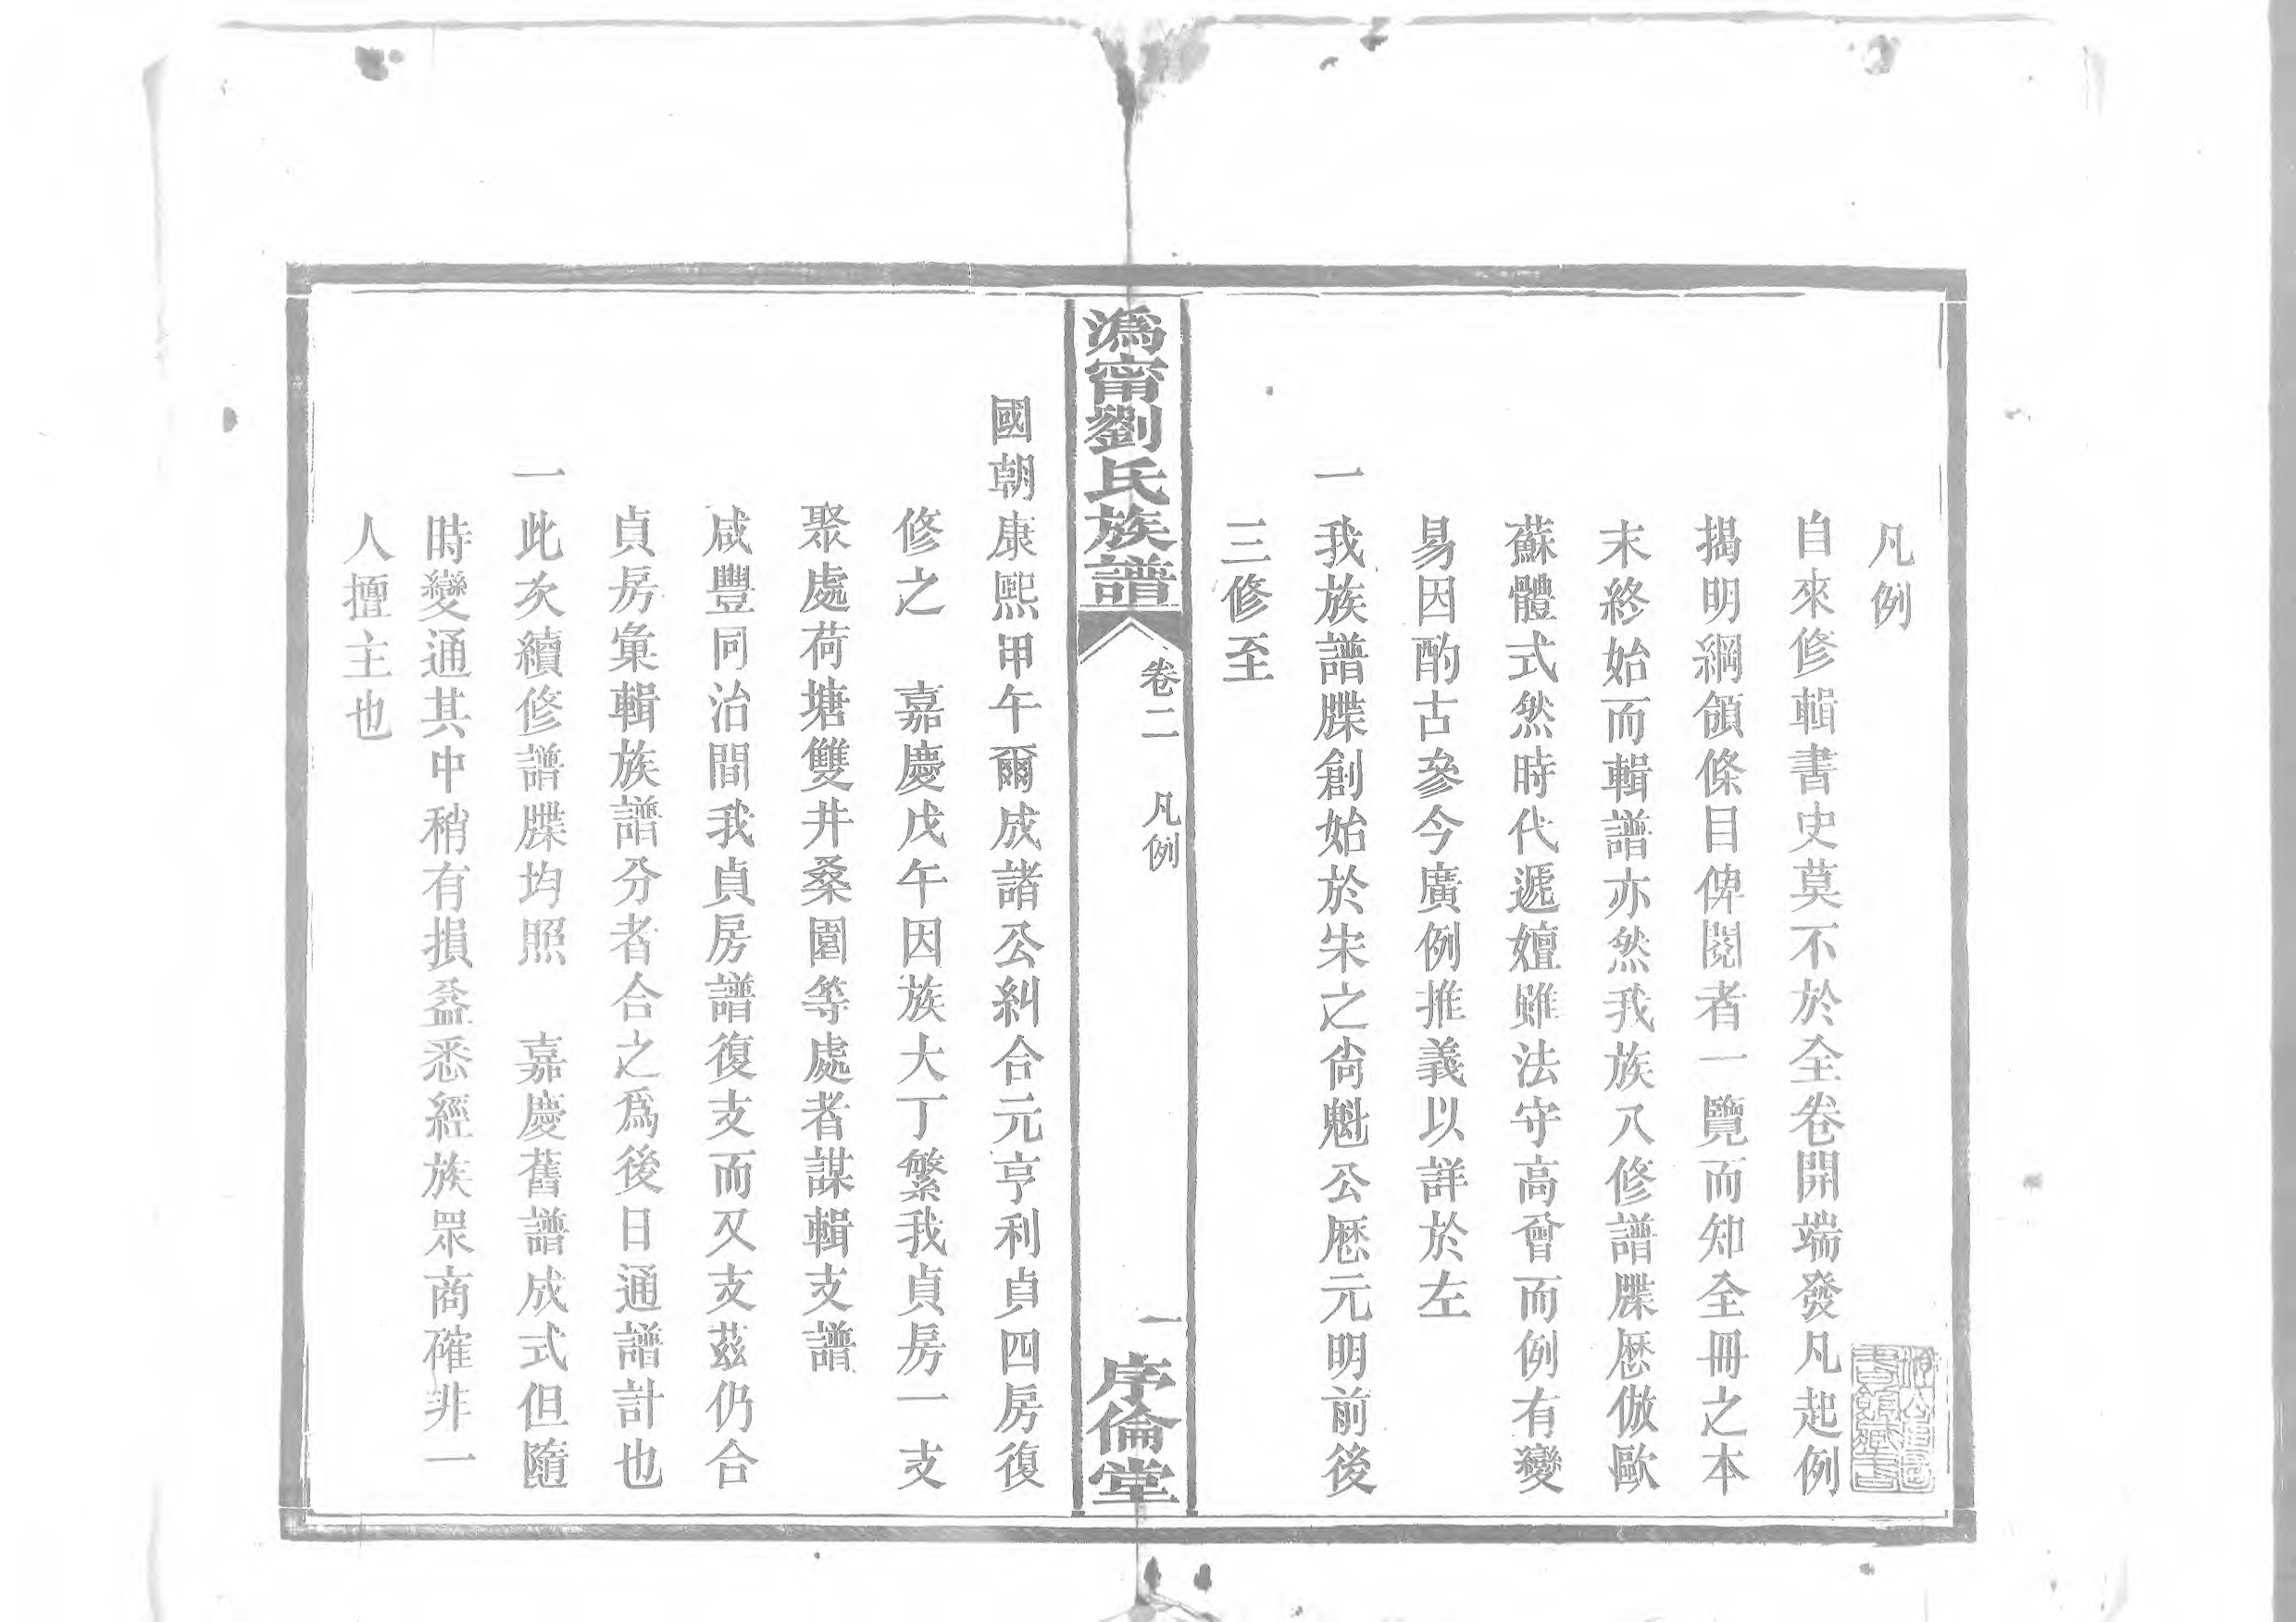 凡例
自來修輯書史莫不於全卷開端發凡起例
揭明綱領條目俾閱者一覽而知全冊之本
末終始而輯譜亦然我族八修譜牒厯倣歐
蘇體式然時代遞嬗雖法守高曾而例有變
易因酌古參今廣例推義以詳於左
一我族譜牒創始於宋之尙魁公厯元明前後
三修至
溈甯劉氏族譜
卷二 凡例
一
序倫堂
國朝康熙甲午爾成諸公糾合元亨利貞四房復
修之 嘉慶戊午因族大丁繁我貞房一支
聚處荷塘雙井桑園等處者謀輯支譜
咸豐同治間我貞房譜復支而又支茲仍合
貞房彙輯族譜分者合之爲後日通譜計也
一此次續修譜牒均照 嘉慶舊譜成式但隨
時變通其中稍有損益悉經族眾商確非一
人擅主也